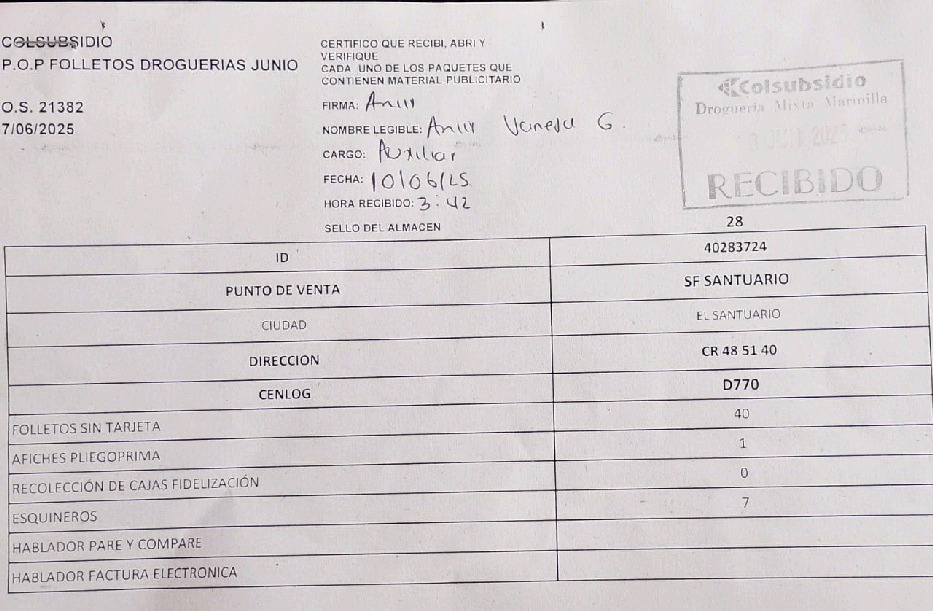 COLSUBSIDIO
P.O.P FOLLETOS DROGUERIAS JUNIO
O.S. 21382
7/06/2025
CERTIFICO QUE RECIBI, ABRI Y
VERIFIQUE
CADA UNO DE LOS PAQUETES QUE
CONTIENEN MATERIAL PUBLICITARIO
FIRMA:
NOMBRE LEGIBLE: G.
CARGO: Auxiliar
FECHA: 10/06/25
HORA RECIBIDO: 3:42
SELLO DEL ALMACEN
Colsubsidio
Droguería Mixta Marinilla
RECIBIDO
28
ID 40283724
PUNTO DE VENTA SF SANTUARIO
CIUDAD EL SANTUARIO
DIRECCION CR 48 51 40
CENLOG D770
FOLLETOS SIN TARJETA 40
AFICHES PLIEGOPRIMA 1
RECOLECCIÓN DE CAJAS FIDELIZACIÓN 0
ESQUINEROS 7
HABLADOR PARE Y COMPARE
HABLADOR FACTURA ELECTRONICA